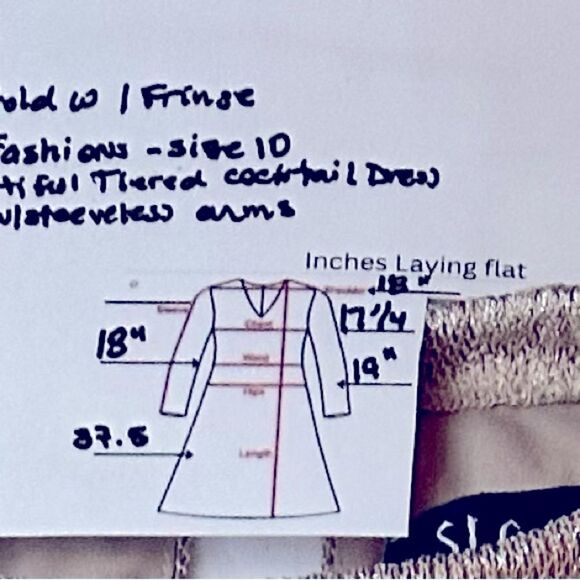 old w/ Fringe
Fashions - size 10
tiful Tiered cocktail Dress
w/sleeveless arms
Inches Laying flat
Shoulder 18"
Sleeve
Chest 17 1/4
18" Waist
19"
Hips
37.5 Length